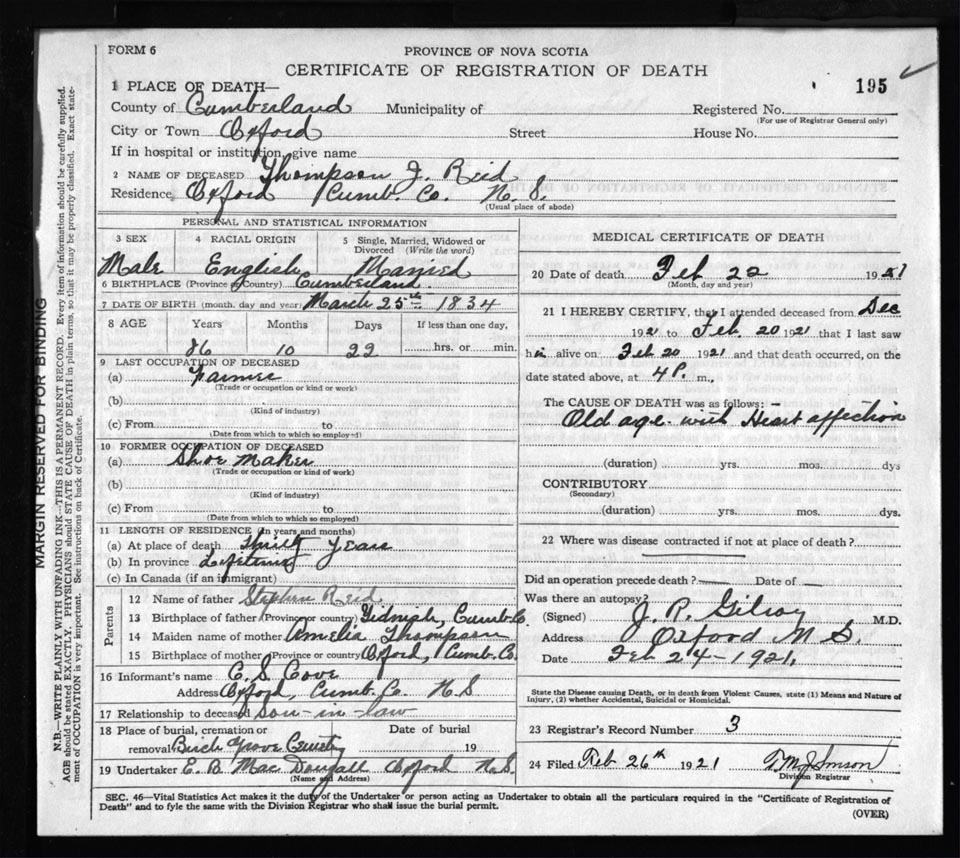 FORM 6
PROVINCE OF NOVA SCOTIA
CERTIFICATE OF REGISTRATION OF DEATH
195
1 PLACE OF DEATH—
County of Cumberland Municipality of Registered No.
(For use of Registrar General only)
City or Town Oxford Street House No.
If in hospital or institution, give name
2 NAME OF DECEASED Thompson J. Reid
Residence Oxford Cumb. Co. N. S.
(Usual place of abode)
PERSONAL AND STATISTICAL INFORMATION
3 SEX 4 RACIAL ORIGIN 5 Single, Married, Widowed or Divorced (Write the word)
Male English Married
6 BIRTHPLACE (Province or Country) Cumberland
7 DATE OF BIRTH (month, day and year) March 25th 1834
8 AGE Years Months Days If less than one day,
86 10 22 hrs. or min.
9 LAST OCCUPATION OF DECEASED
(a) Farmer
(Trade or occupation or kind or work)
(b)
(Kind of industry)
(c) From to
(Date from which to which so employed)
10 FORMER OCCUPATION OF DECEASED
(a) Shoe Maker
(Trade or occupation or kind of work)
(b)
(Kind of industry)
(c) From to
(Date from which to which so employed)
11 LENGTH OF RESIDENCE (In years and months)
(a) At place of death Thirty Years
(b) In province Lifetime
(c) In Canada (if an immigrant)
Parents
12 Name of father Stephen Reid
13 Birthplace of father (Province or country) Tidnish, Cumb. Co.
14 Maiden name of mother Amelia Thompson
15 Birthplace of mother (Province or country) Oxford, Cumb. Co.
16 Informant's name C. S. Cove
Address Oxford, Cumb. Co. N. S
17 Relationship to deceased son-in-law
18 Place of burial, cremation or Date of burial
removal Birch Grove Cemetry 19
19 Undertaker E. B. MacDougall Oxford N. S.
(Name and Address)
MEDICAL CERTIFICATE OF DEATH
20 Date of death Feb 22 1921
(Month, day and year)
21 I HEREBY CERTIFY, that I attended deceased from Dec
1921 to Feb. 20 1921 that I last saw
him alive on Feb 20 1921 and that death occurred, on the
date stated above, at 4 P. m.,
The CAUSE OF DEATH was as follows:—
Old age with Heart affection
(duration) yrs. mos. dys
CONTRIBUTORY
(Secondary)
(duration) yrs. mos. dys.
22 Where was disease contracted if not at place of death?
Did an operation precede death? Date of
Was there an autopsy?
(Signed) J. R. Gilroy M.D.
Address Oxford N. S.
Date Feb 24-1921.
State the Disease causing Death, or in death from Violent Causes, state (1) Means and Nature of
Injury, (2) whether Accidental, Suicidal or Homicidal.
23 Registrar's Record Number 3
24 Filed Feb 26th 1921
Division Registrar
SEC. 46—Vital Statistics Act makes it the duty of the Undertaker or person acting as Undertaker to obtain all the particulars required in the "Certificate of Registration of
Death" and to fyle the same with the Division Registrar who shall issue the burial permit.
(OVER)
MARGIN RESERVED FOR BINDING
N.B.—WRITE PLAINLY WITH UNFADING INK—THIS IS A PERMANENT RECORD. Every item of information should be carefully supplied.
AGE should be stated EXACTLY. PHYSICIANS should STATE CAUSE OF DEATH in plain terms, so that it may be properly classified. Exact state-
ment of OCCUPATION is very important. See instructions on back of Certificate.